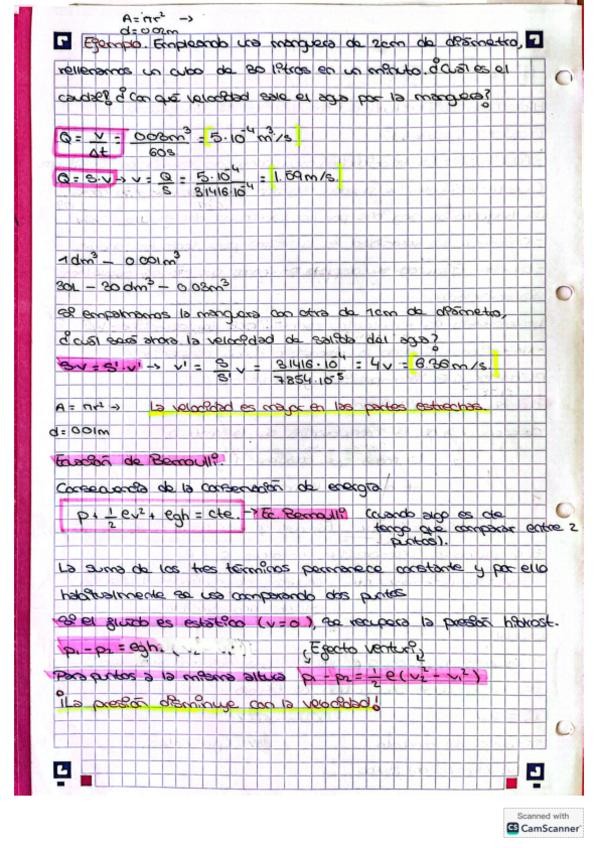 A = πr² →
d = 0.02m
Ejemplo. Empleando una manguera de 2cm de diámetro,
rellenamos un cubo de 30 litros en un minuto. ¿Cuál es el
caudal? ¿Con qué velocidad sale el agua por la manguera?
Q = V/Δt = 0.03m³/60s = 5·10⁻⁴ m³/s
Q = S·v → v = Q/S = 5·10⁻⁴/3.1416·10⁻⁴ = 1.59m/s.
1dm³ — 0.001m³
30L — 30dm³ — 0.03m³
Si empalmamos la manguera con otra de 1cm de diámetro,
¿cuál será ahora la velocidad de salida del agua?
S·v = S'·v' → v' = S/S' v = 3.1416·10⁻⁴/7.854·10⁻⁵ = 4v = 6.36m/s.
A = πr² → La velocidad es mayor en las partes estrechas.
d = 0.01m
Ecuación de Bernoulli.
Consecuencia de la conservación de energía
p + 1/2 ρv² + ρgh = cte. → Ec. Bernoulli (cuando algo es cte
tengo que comparar entre 2
puntos).
La suma de los tres términos permanece constante y por ello
habitualmente se usa comparando dos puntos
Si el fluido es estático (v=0), se recupera la presión hidrost.
p₁ - p₂ = ρgh. ¿Efecto venturi?
Para puntos a la misma altura p₁ - p₂ = 1/2 ρ(v₂² - v₁²)
¡La presión disminuye con la velocidad!
Scanned with
CS CamScanner